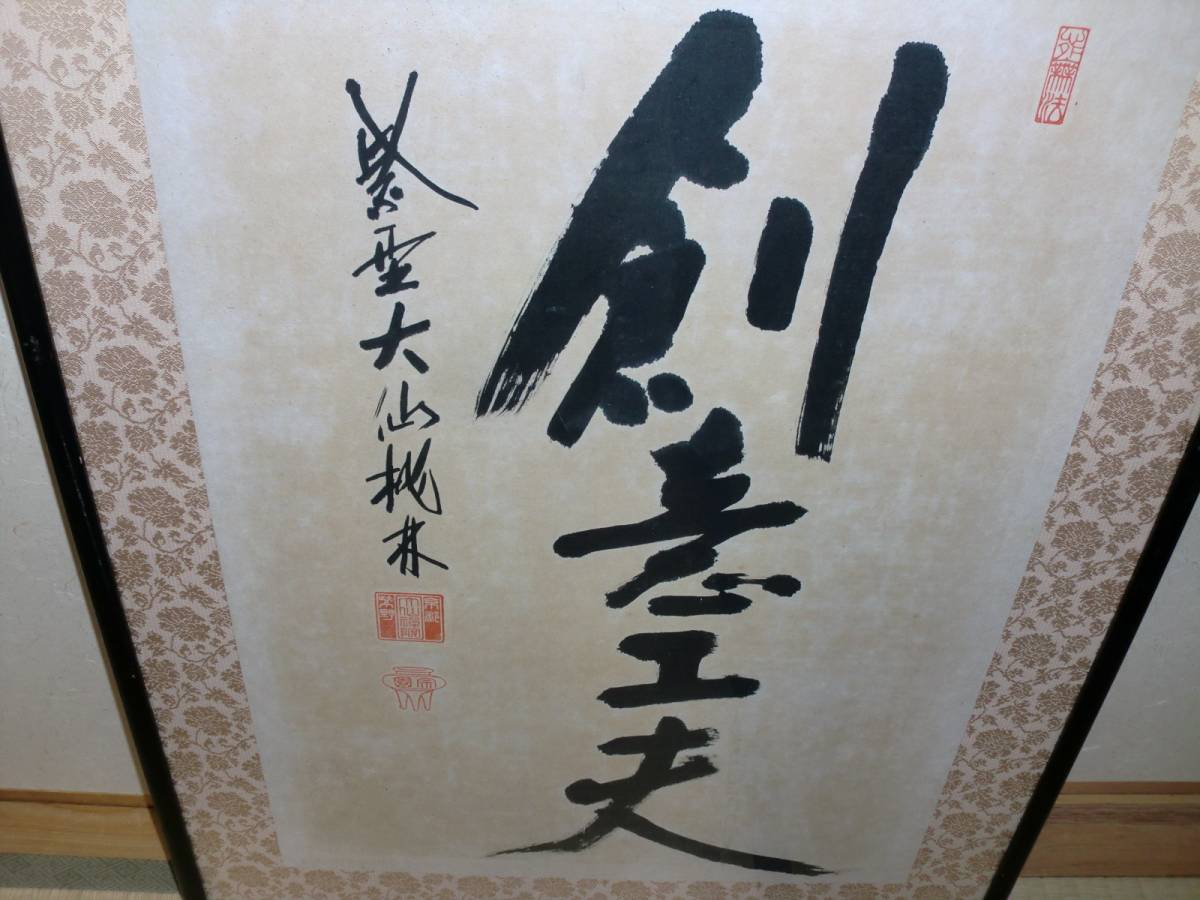 創意工夫
紫野大仙桃林